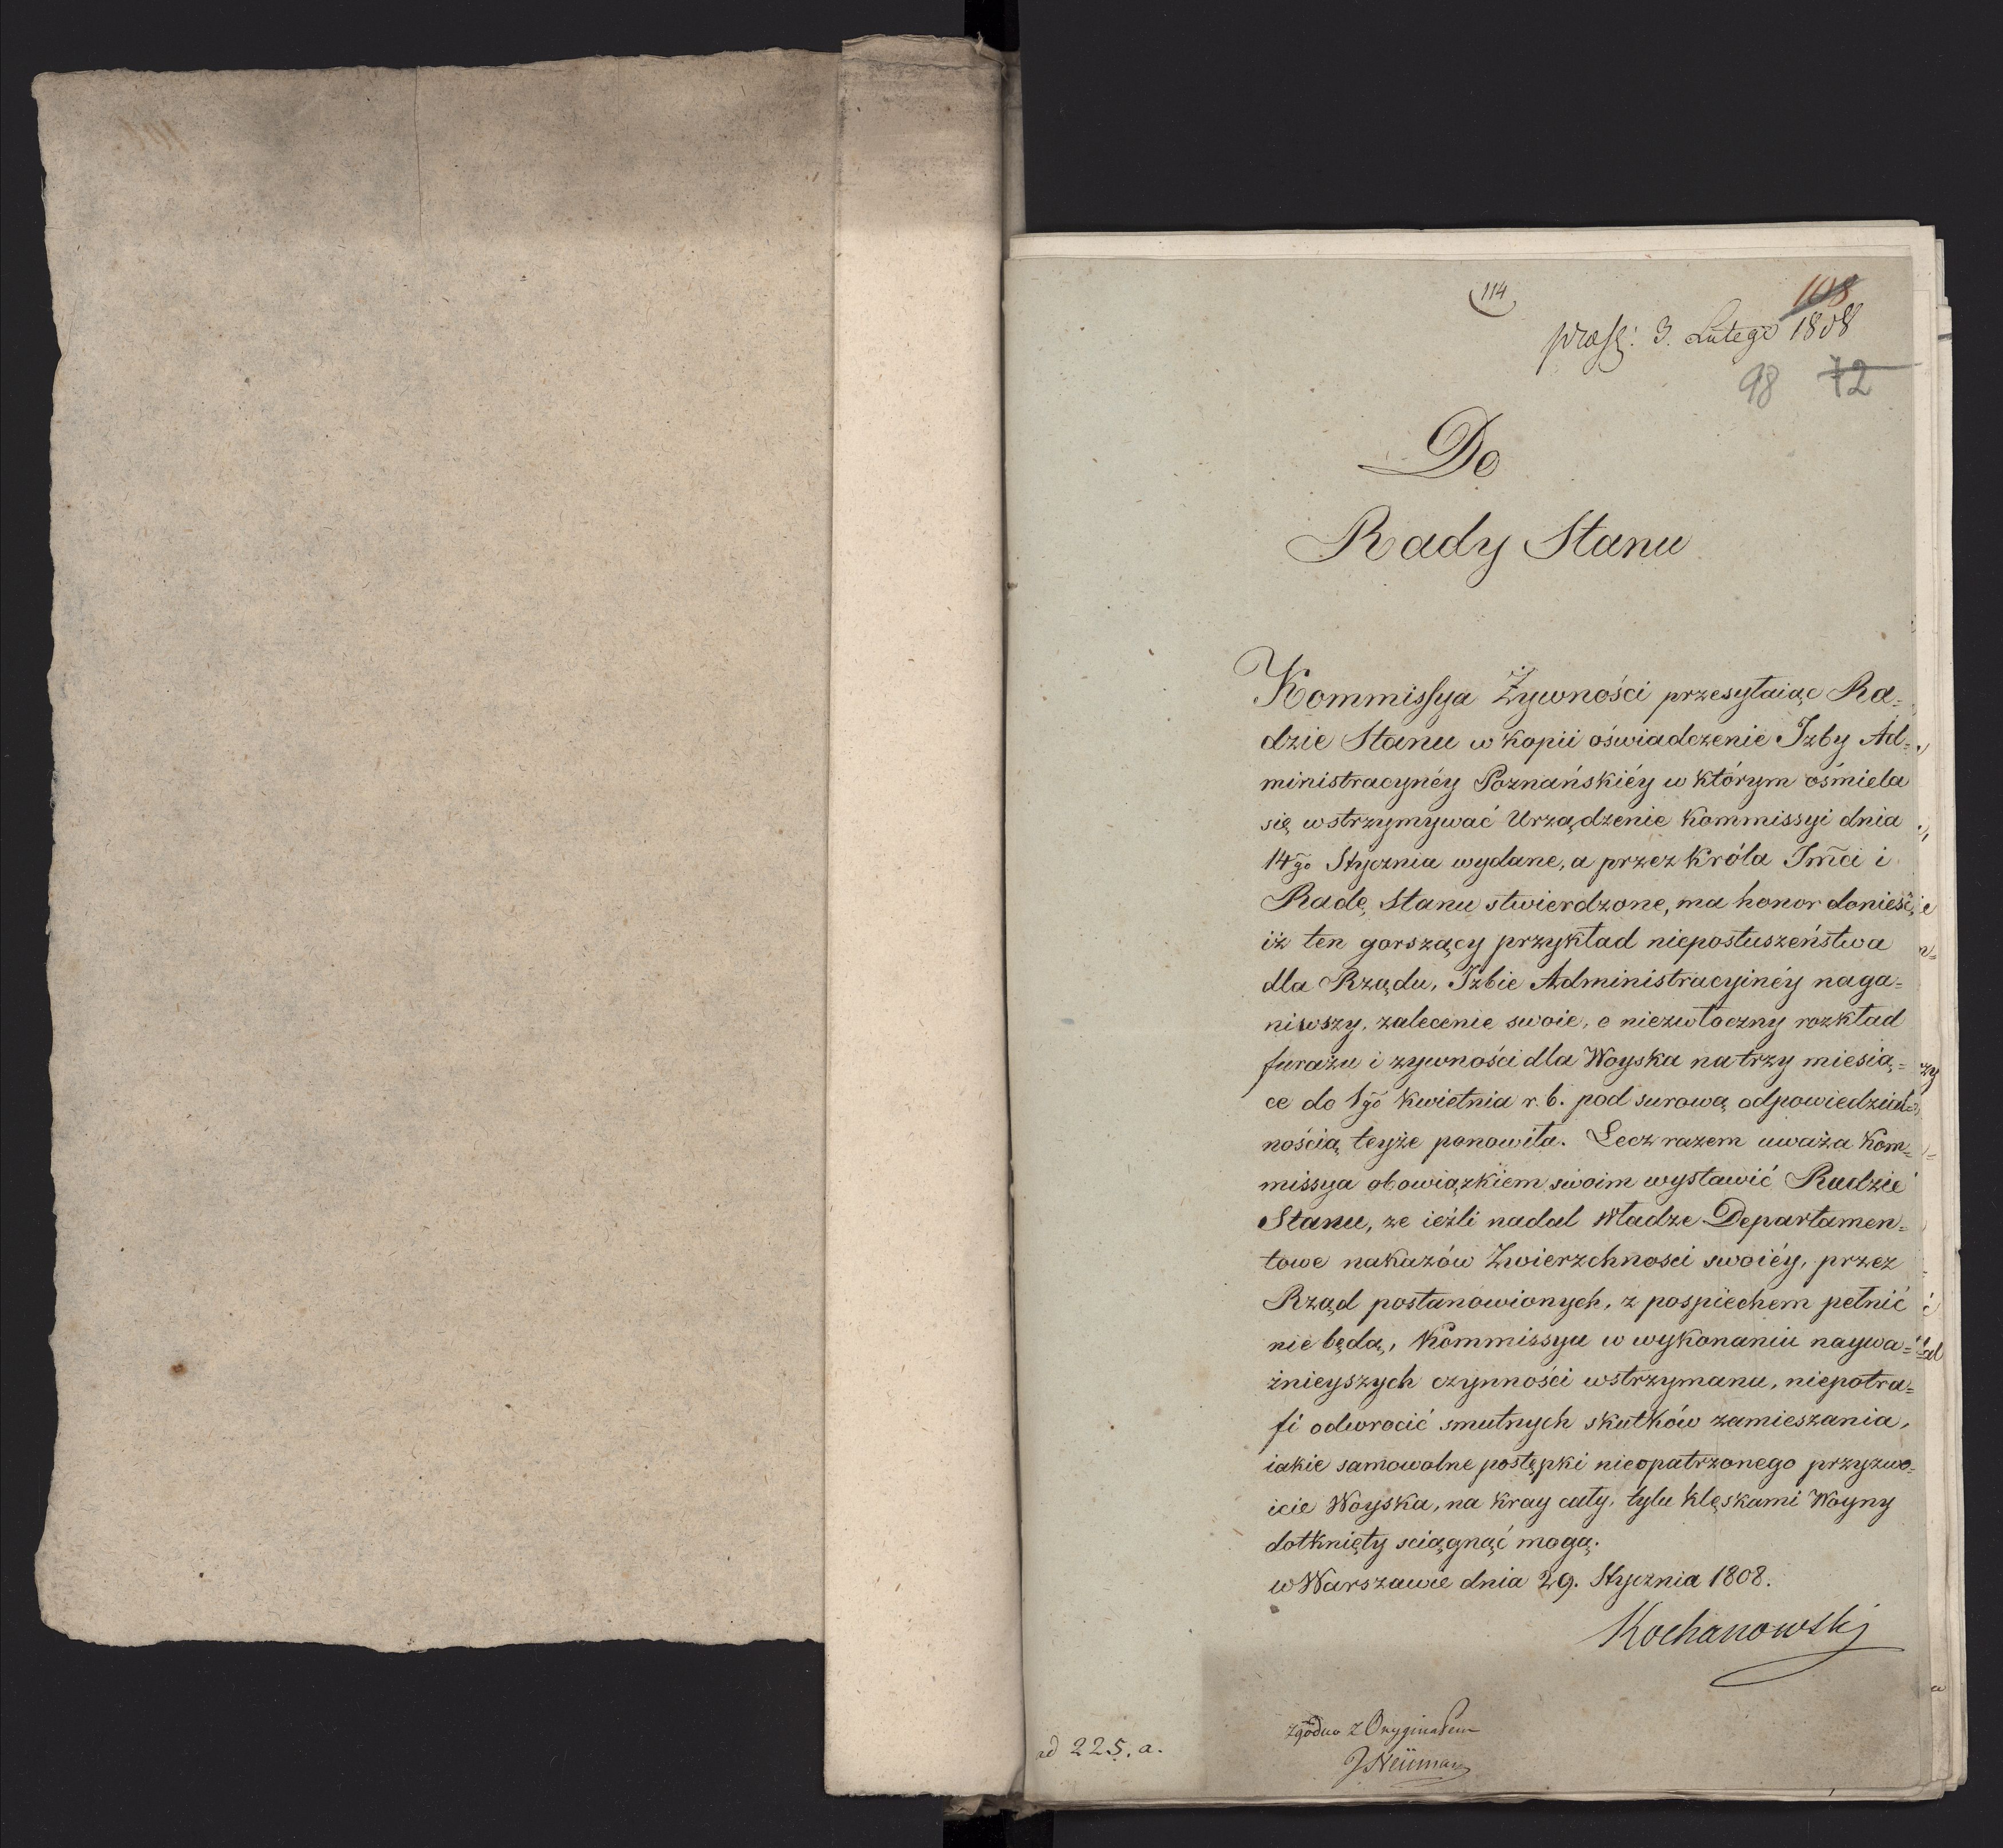 114
108
præs: 3. Lutego 1808
98 72
Do
Rady Stanu
Kommissya Żywności przesyłaiąc Ra=
dzie Stanu w kopii oświadczenie Izby Ad=
ministracynéy Poznańskiéy w którym ośmiela
się wstrzymywać Urządzenie Kommissyi dnia
14go Stycznia wydane, a przez Króla Jmci i
Radę Stanu stwierdzone, ma honor donieść,
iż ten gorszący przykład nieposłuszeństwa
dla Rządu, Izbie Administracyinéy naga=
niwszy, zalecenie swoie, o niezwłoczny rozkład
furażu i zywności dla Woyska na trzy miesią=
ce do 1go Kwietnia r. b. pod surową odpowiedzial=
nością teyże ponowiła. Lecz razem uważa Kom=
missya obowiązkiem swoim wystawić Radzie
Stanu, ze ieżli nadal Władze Departamen=
towe nakazów Zwierzchnosci swoiéy, przez
Rząd postanowionych, z pospiechem pełnić
nie będą, Kommissya w wykonaniu naywa=
żnieyszych czynności wstrzymana, niepotra=
fi odwrocić smutnych skutków zamieszania,
iakie samowolne postępki nieopatrzonego przyzwo=
icie Woyska, na kray cały, tylu klęskami Woyny
dotknięty sciągnąć mogą.
w Warszawie dnia 29. Stycznia 1808.
Kochanowski
Zgodno z Oryginałem
J Neüman
ad 225. a.